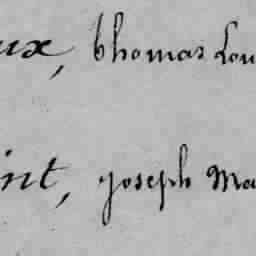 ux, thomas Lou
int, joseph Ma